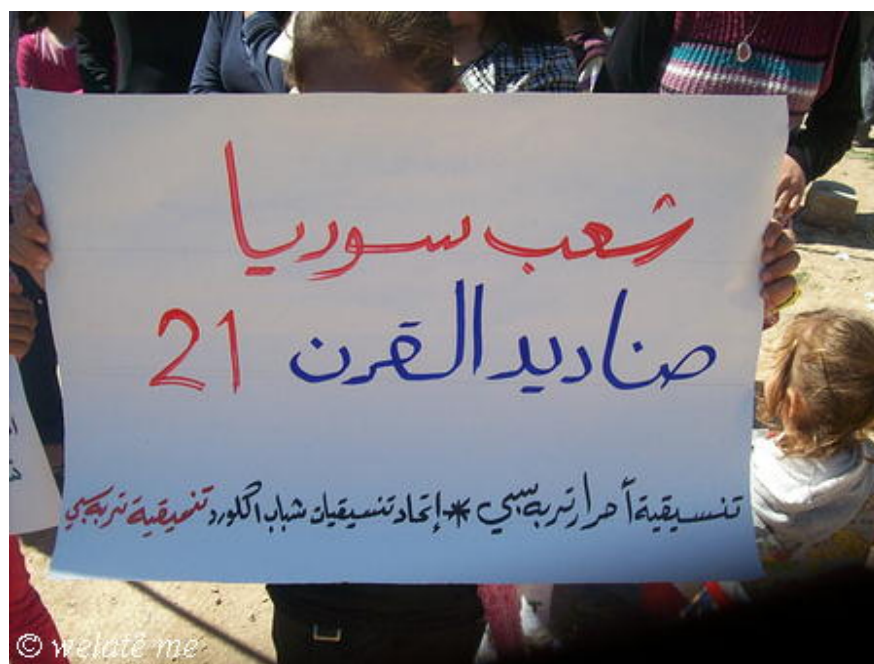 شعب سوريا
صناديد القرن 21
تنسيقية أحرار تربه سبي * إتحاد تنسيقيات شباب الكورد تنسيقية تربه سبي
© welatê me